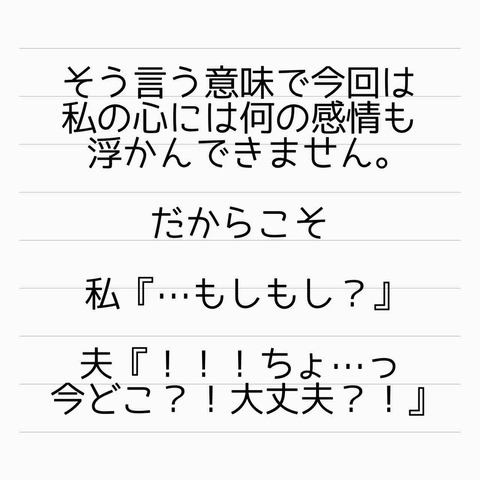 そう言う意味で今回は
私の心には何の感情も
浮かんできません。
だからこそ
私『…もしもし？』
夫『！！！ちょ…っ
今どこ？！大丈夫？！』